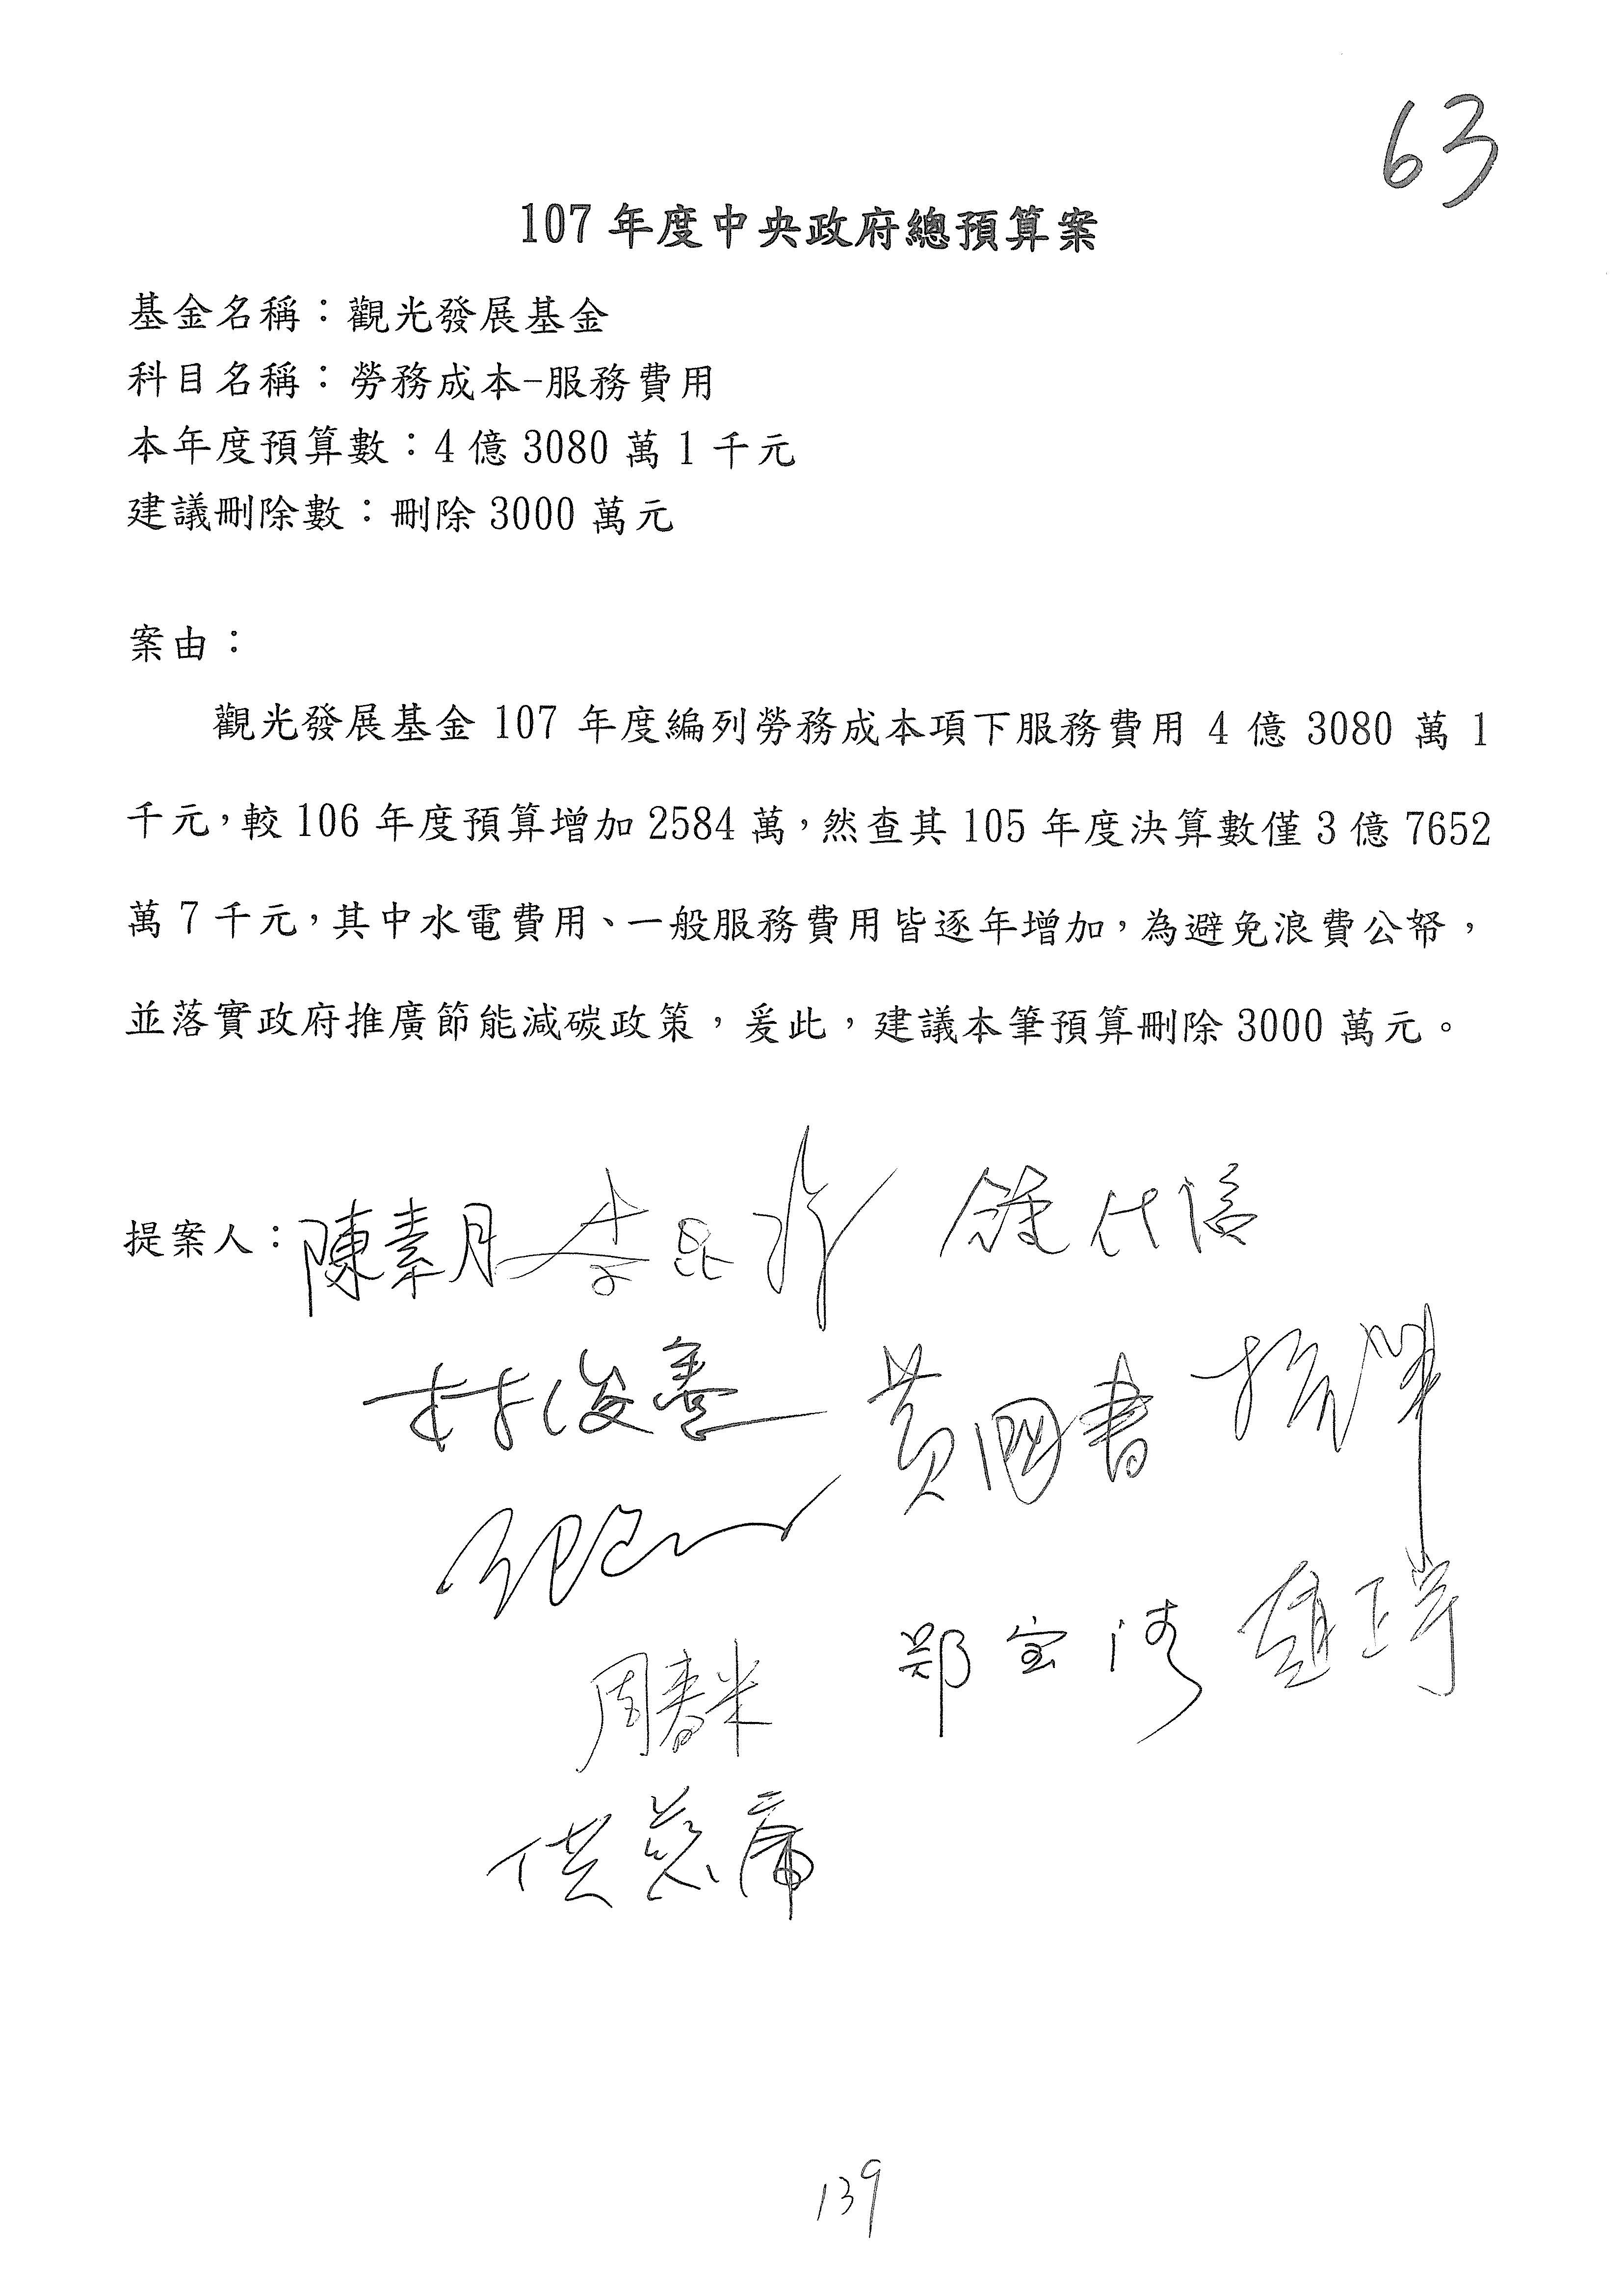 63
107 年度中央政府總預算案
基金名稱：觀光發展基金
科目名稱：勞務成本-服務費用
本年度預算數：4 億 3080 萬 1 千元
建議刪除數：刪除 3000 萬元
案由：
觀光發展基金 107 年度編列勞務成本項下服務費用 4 億 3080 萬 1
千元，較 106 年度預算增加 2584 萬，然查其 105 年度決算數僅 3 億 7652
萬 7 千元，其中水電費用、一般服務費用皆逐年增加，為避免浪費公帑，
並落實政府推廣節能減碳政策，爰此，建議本筆預算刪除 3000 萬元。
提案人：陳素月 李昆澤
林俊憲 黃國書
鄭宝清 趙正宇
周春米
洪慈庸
139